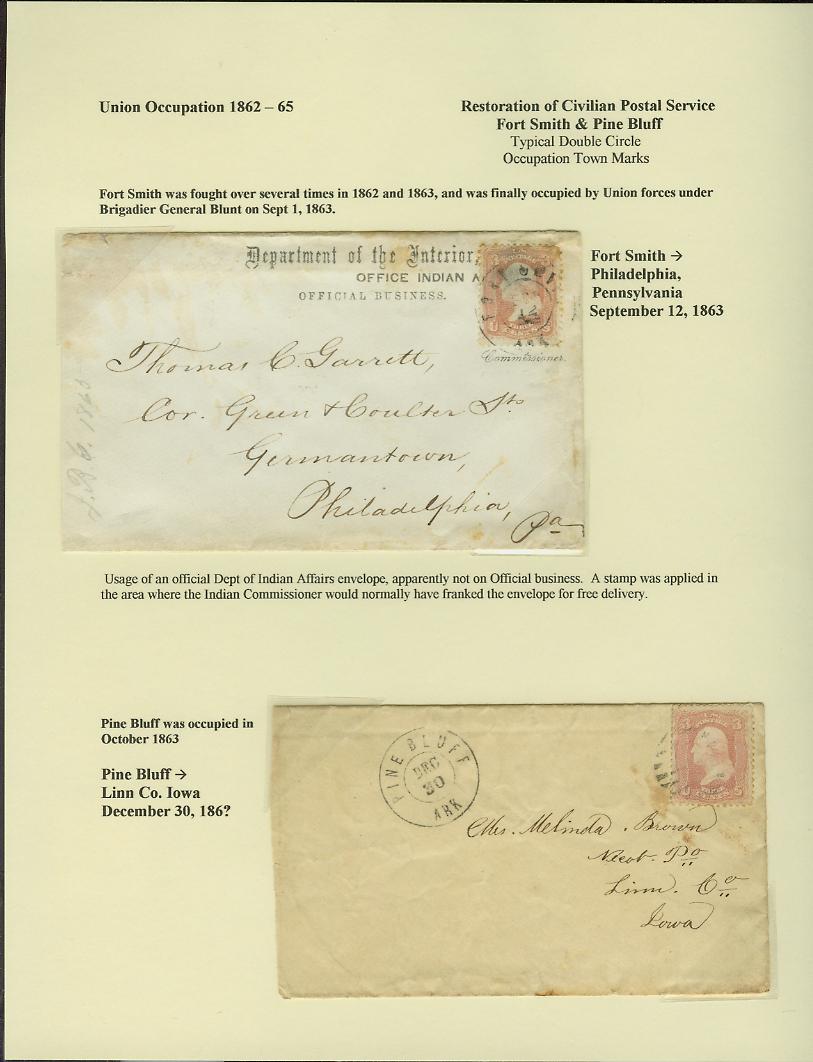 Union Occupation 1862 – 65
Restoration of Civilian Postal Service
Fort Smith & Pine Bluff
Typical Double Circle
Occupation Town Marks
Fort Smith was fought over several times in 1862 and 1863, and was finally occupied by Union forces under
Brigadier General Blunt on Sept 1, 1863.
Department of the Interior,
OFFICE INDIAN A
OFFICIAL BUSINESS.
ARK
Commissioner.
Thomas C. Garrett,
Cor. Green & Coulter Sts
Germantown,
Philadelphia,
Pa
1863
Fort Smith →
Philadelphia,
Pennsylvania
September 12, 1863
Usage of an official Dept of Indian Affairs envelope, apparently not on Official business. A stamp was applied in
the area where the Indian Commissioner would normally have franked the envelope for free delivery.
Pine Bluff was occupied in
October 1863
Pine Bluff →
Linn Co. Iowa
December 30, 186?
PINE BLUFF
DEC
30
ARK
3 3
Mrs. Melinda. Brown
Po
Linn. Co
Iowa